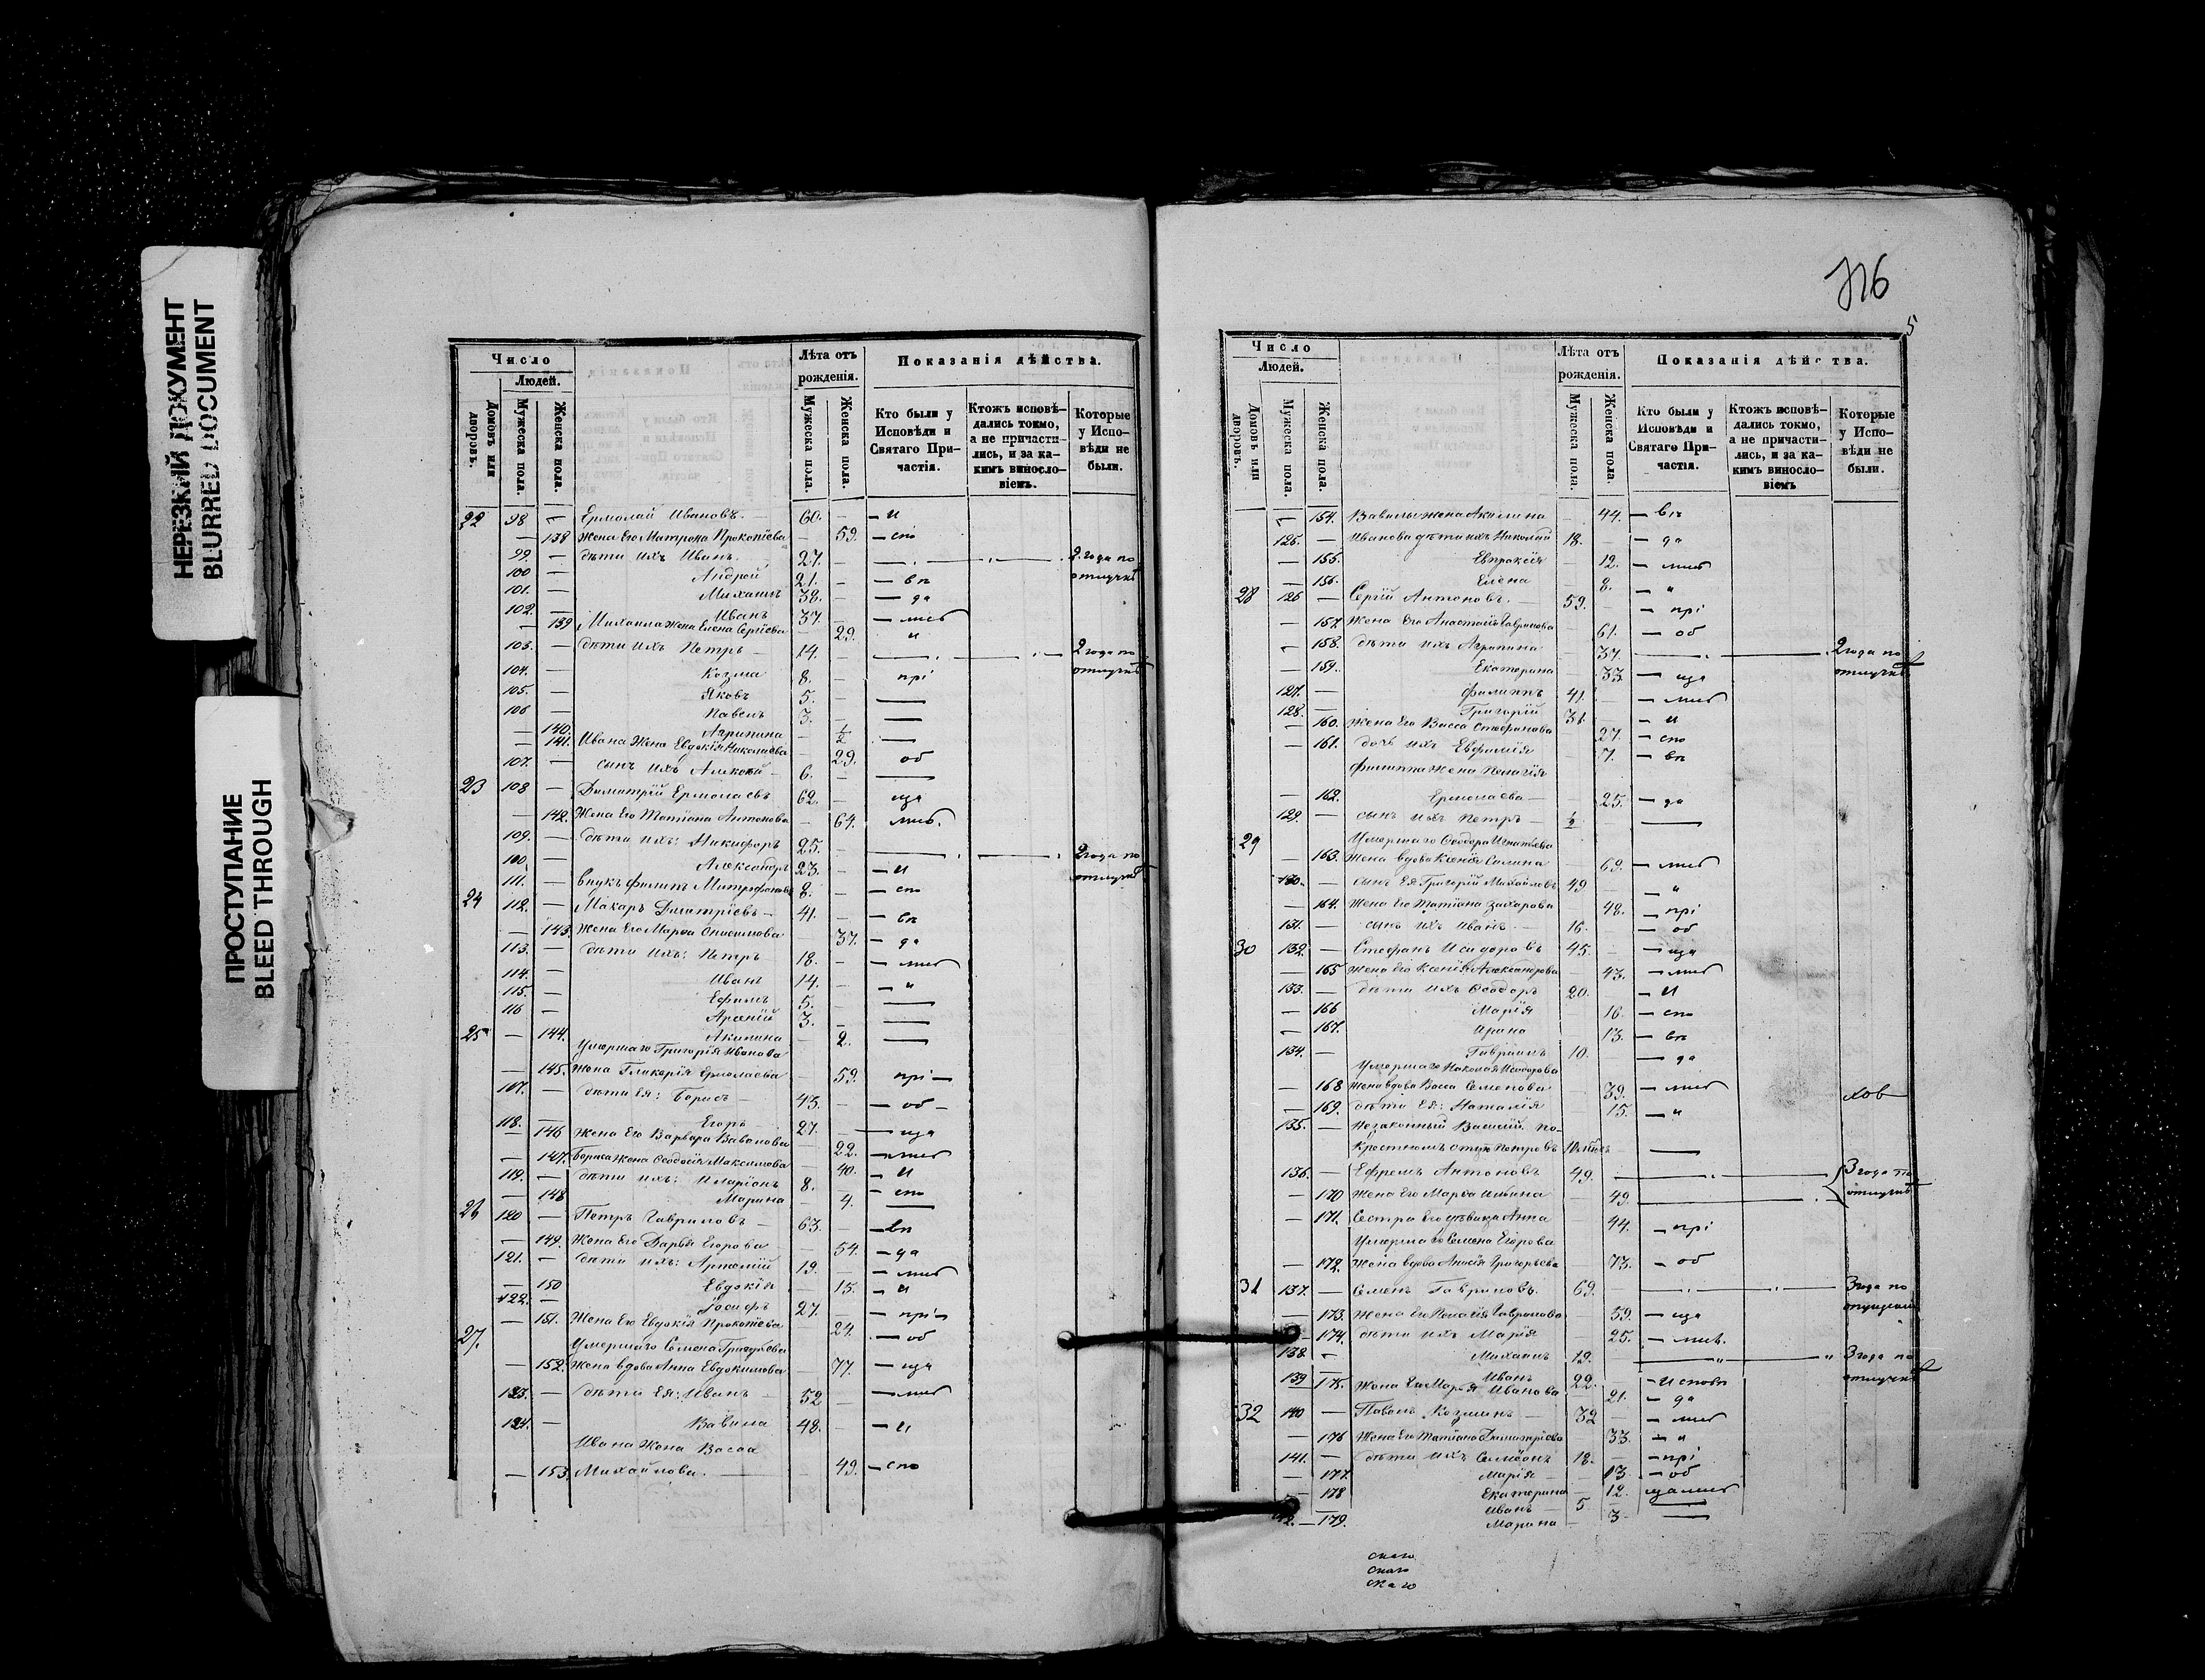 НЕРЕЗКИЙ ДОКУМЕНТ
BLURRED DOCUMENT
ПРОСТУПАНИЕ
BLEED THROUGH
Число
Людей.
Домовъ или дворовъ.
Мужеска пола.
Женска пола.
Лѣта отъ рожденія.
Мужеска пола.
Женска пола.
Показанія дѣйства.
Кто были у Исповѣди и Святаго Причастія.
Ктожъ исповѣдались токмо, а не причастились, и за какимъ винословіемъ.
Которые у Исповѣди не были.
22 98 — Ермолай Ивановъ. 60. — и
— 138 Жена его Матрона Прокопіева — 59. — спо
99. — дѣти ихъ Иванъ. 27. — 2 года по
100 — Андрей 21. — — вѣ отлучкѣ
101. — Михаилъ 38. — — да
102. — Иванъ 37. — — лись
— 139 Михаила жена Елена Сергіева — 29. и
103. — дѣти ихъ Петръ — 14. — 2 года по
104. — Козма 8. — прі отлучкѣ
105. — Яковъ 5. —
106 — Павелъ 3. —
— 140. Агрипина — 1/2 —
— 141. Ивана жена Евдокія Николаева — 29. об
107. — сынъ ихъ Алексѣй — 6. —
23 108 — Димитрій Ермолаевъ 62. — ща
— 142. Жена его Татіана Антонова — 64. лись.
109. — дѣти ихъ: Никифоръ 25. — 2 года по
110. — Александръ 23. — — и отлучкѣ
111. — внукъ Филипъ Митрофановъ 8. — — спо
24 112. — Макаръ Димитріевъ — 41. — — вѣ
— 143. Жена его Марѳа Онисимова 37. — да
113. — дѣти ихъ: Петръ — 18. — — лись
114. — Иванъ 14. — — "
115. — Ефимъ 5. —
116 — Арсеній 3. —
— 144. Акилина — 2. —
25 Умершаго Григорія Иванова
— 145. Жена Гликерія Ермолаева — 59. прі —
117. — дѣти ея: Борисъ — 43. — — об —
118. — Егоръ — 27. — — ща
— 146 Жена его Варвара — 22. — лись
— 147. Бориса жена Ѳеодосія Максимова — 40. — и
119. — дѣти ихъ: Иларіонъ 8. — — спо
— 148 Марина 4. —
26 120 — Петръ Гавриловъ — 63. — — вѣ
— 149. Жена его Дарья Егорова — 54. — да
121. — дѣти ихъ: Артемій 19. — — лись
— 150 Евдокія — 15. — и
122. — Іосифъ 27. — — прі —
— 151. Жена его Евдокія Прокопіева 24. — об
27. Умершаго Семена Григорьева
— 152. Жена вдова Анна Евдокимова 77. — ща
123. — дѣти ея: Иванъ — 52 — — лись
124. — Вавила 48. — — и
Ивана жена Васса
— 153. Михайлова. — 49. — спо
376
5
Число
Людей.
Домовъ или дворовъ.
Мужеска пола.
Женска пола.
Лѣта отъ рожденія.
Мужеска пола.
Женска пола.
Показанія дѣйства.
Кто были у Исповѣди и Святаго Причастія.
Ктожъ исповѣдались токмо, а не причастились, и за какимъ винословіемъ
Которые у Исповѣди не были.
— 154. Вавилы жена Акилина — 44. — вѣ
125. — Иванова дѣти ихъ Николай 18. — — да
— 155. Евпраксія — 12. — лись
— 156. Елена — 8. — "
28 126 — Сергій Антоновъ. — 59. — — прі
— 157. Жена его Анастасія Гаврилова — 61. — об
— 158. дѣти ихъ Агрипина — 37. — 2 года по
— 159. Екатерина — 33. — ща отлучкѣ
127. — Филиппъ 41 — лись
128. — Григорій 31. — и
— 160. Жена его Васса Стефанова 27. — спо
— 161. дочь ихъ Евфимія 7. — вѣ
Филиппа жена Пелагія
— 162. Ермолаева — 25. — да
129. — сынъ ихъ Петръ — 1/2 —
29 Умершаго Ѳеодора Игнатьева
— 163. Жена вдова Ксенія — 69. — лись
130. — сынъ ея Григорій Михайловъ 49 — "
— 164. Жена его Татіана Захарова 48. — прі
131. — сынъ ихъ Иванъ. — 16. — об
30 132. — Стефанъ Исидоровъ 45. — ща
— 165 Жена его Ксенія Александрова 43. — лись
133. — дѣти ихъ Ѳеодоръ 20. — и
— 166 Марія 16. — спо
— 167. Ирина 13. — вѣ
134. — Гавріилъ 10. — да
Умершаго Николая Исидорова
— 168 Жена вдова Васса Семенова 39. — лись
— 169. дѣти ея: Наталія 15. — "
135. — Незаконный Василій по
крестномъ отцу Петровъ —
136. — Ефремъ Антоновъ 49. — 3 года по
— 170 Жена его Марѳа Ильина — 49. — отлучкѣ
— 171. Сестра его дѣвица Анна 44. — прі
Умершаго Семена Егорова
— 172. Жена вдова Анисія Григорьева 73. — об
31 137. — Семенъ Гавриловъ. 69. — 3 года по
— 173. Жена его Пелагія Гаврилова 59. — ща
— 174. дѣти ихъ Марія 25. — лись.
138. — Михаилъ 19. — " 3 года по
139 — Иванъ 22. — исповѣ отлучкѣ
175. Жена его Марья Иванова 21. — да
32 140 — Павелъ Козминъ — 32 — лись
— 176 Жена его Татіана Димитріева 33. — и
141. — дѣти ихъ Симеонъ 18. — прі
— 177. Марія — 13. — об
— 178 Екатерина — 12. щались
— Иванъ — 5 —
— 179. Марина 3. —
скаго
скаго
скаго